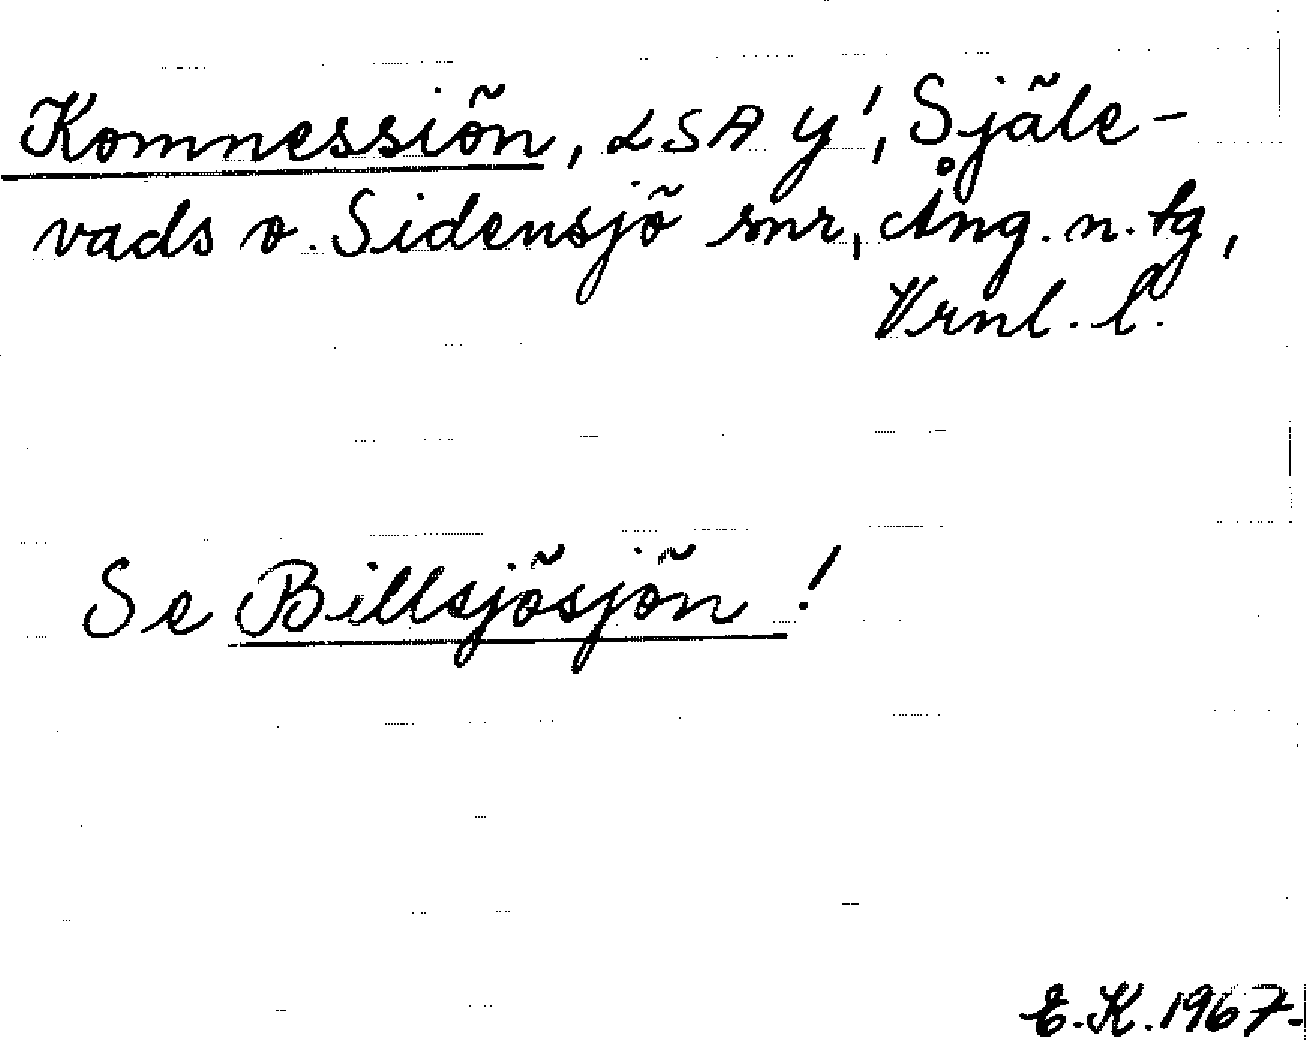 Komnessiön, LSA Y', Själe-
vads o. Sidensjö snr, Ång. n. tg,
Vrnl. l.
Se Billsjösjön!
E.K. 1967.